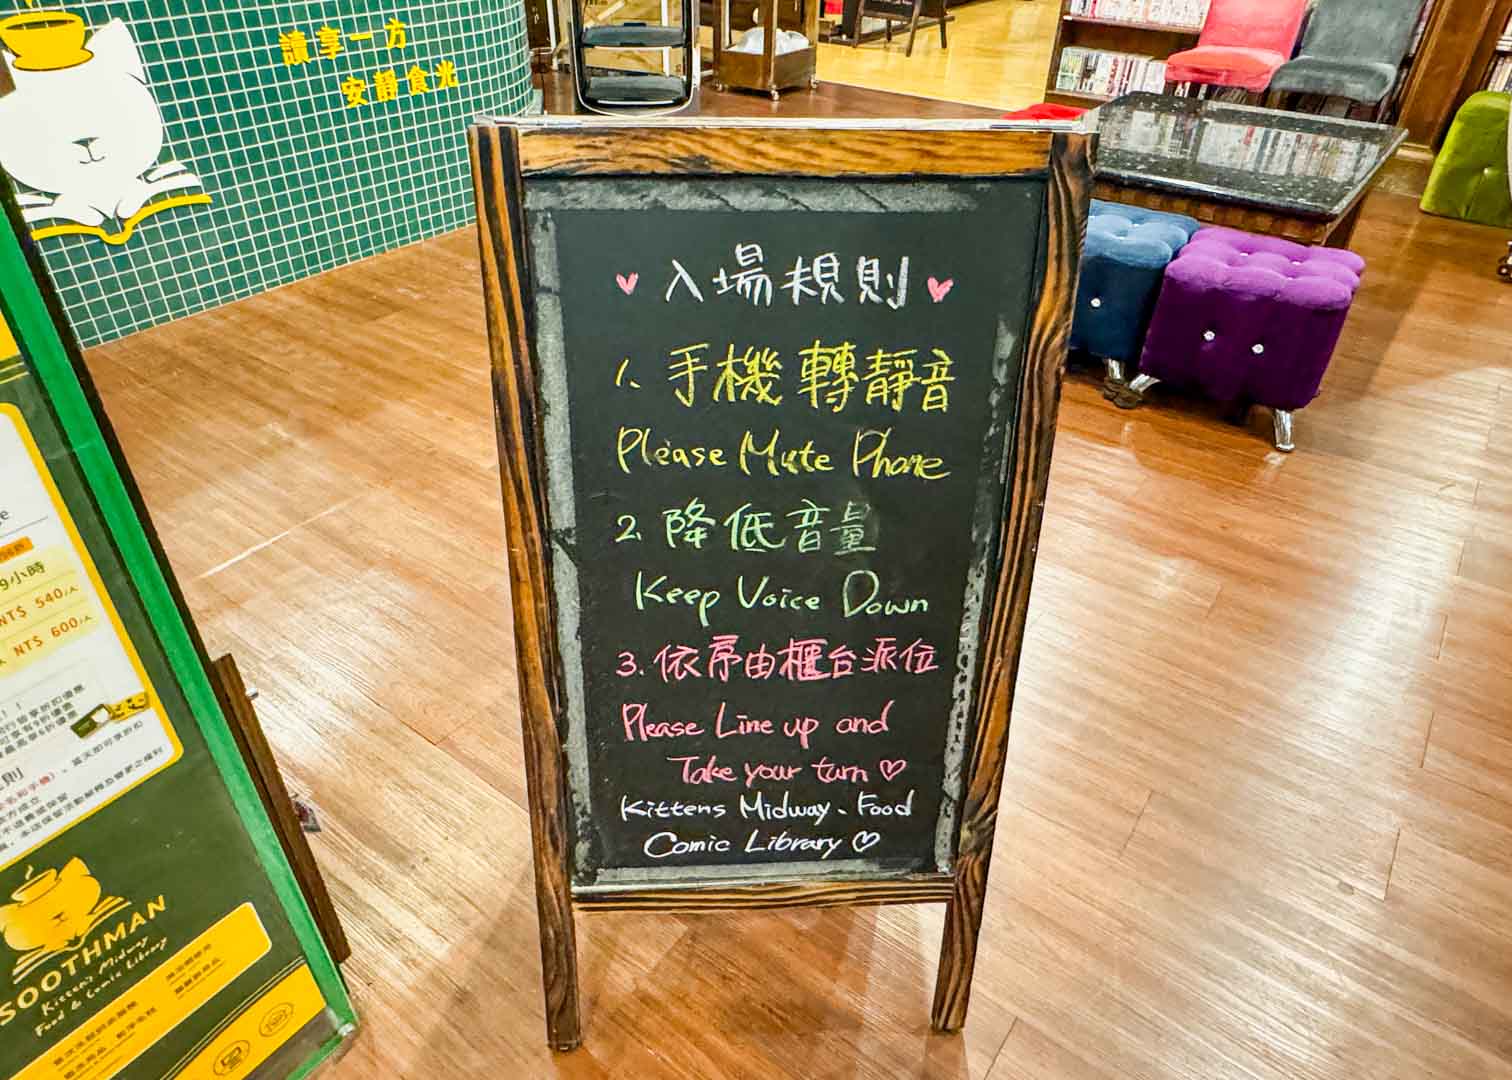 讀享一方
安靜食光
入場規則
1. 手機轉靜音
Please Mute Phone
2. 降低音量
Keep Voice Down
3. 依序由櫃台派位
Please Line up and
Take your turn ♡
Kittens Midway. Food
Comic Library ♡
9小時
NT$ 540/人
NT$ 600/人
SOOTHMAN
Kitten's Midway
Food & Comic Library